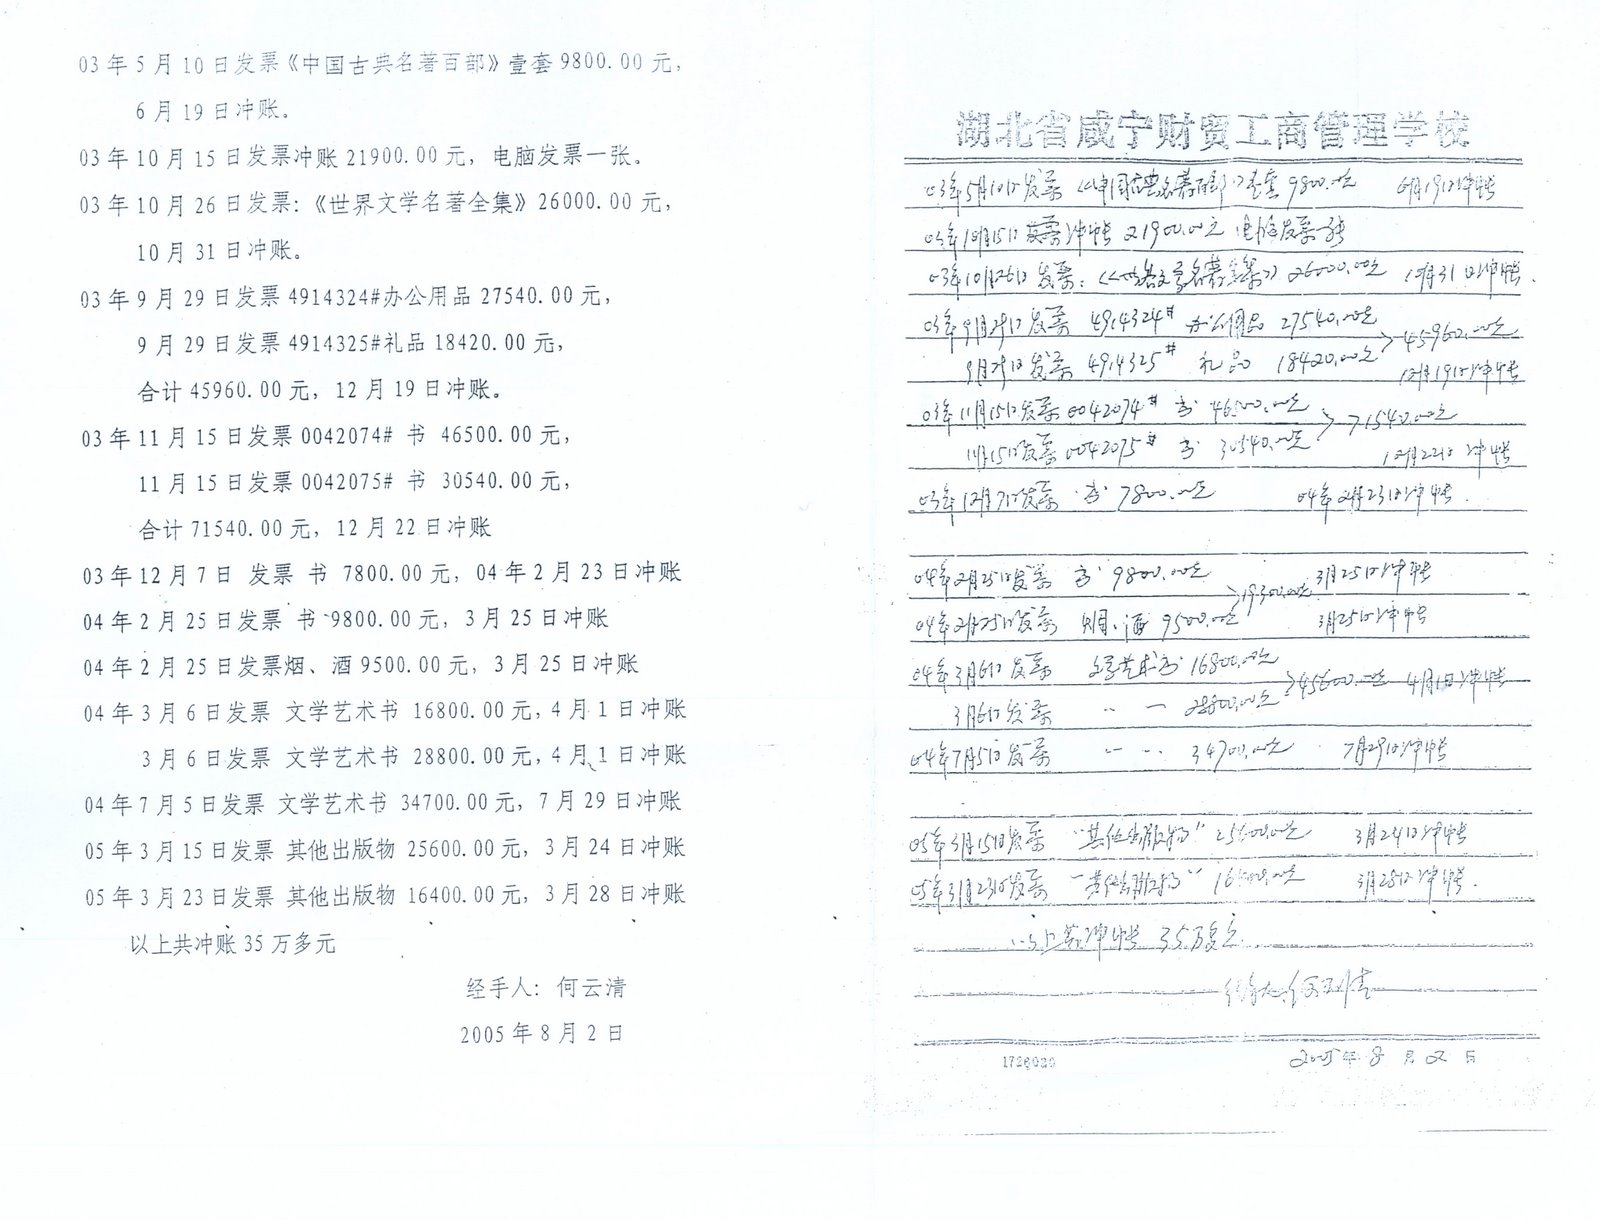 03年5月10日发票《中国古典名著百部》壹套9800.00元，
6月19日冲账。
03年10月15日发票冲账21900.00元，电脑发票一张。
03年10月26日发票：《世界文学名著全集》26000.00元，
10月31日冲账。
03年9月29日发票4914324#办公用品27540.00元，
9月29日发票4914325#礼品18420.00元，
合计45960.00元，12月19日冲账。
03年11月15日发票0042074# 书 46500.00元，
11月15日发票0042075# 书 30540.00元，
合计71540.00元，12月22日冲账
03年12月7日 发票 书 7800.00元，04年2月23日冲账
04年2月25日发票 书 9800.00元，3月25日冲账
04年2月25日发票烟、酒9500.00元，3月25日冲账
04年3月6日发票 文学艺术书 16800.00元，4月1日冲账
3月6日发票 文学艺术书 28800.00元，4月1日冲账
04年7月5日发票 文学艺术书 34700.00元，7月29日冲账
05年3月15日发票 其他出版物 25600.00元，3月24日冲账
05年3月23日发票 其他出版物 16400.00元，3月28日冲账
以上共冲账35万多元
经手人：何云清
2005年8月2日
湖北省咸宁财贸工商管理学校
03年5月10日发票《中国古典名著百部》壹套9800.00元 6月19日冲帐
03年10月15日发票冲帐21900.00元 电脑发票一张
03年10月26日发票：《世界文学名著全集》26000.00元 10月31日冲帐.
03年9月29日发票 4914324# 办公用品 27540.00元
9月29日发票 4914325# 礼品 18420.00元 >45960.00元
12月19日冲帐
03年11月15日发票0042074# 书 46500.00元 >71540.00元
11月15日发票0042075# 书 30540.00元 12月22日冲帐
03年12月7日发票 书 7800.00元 04年2月23日冲帐.
04年2月25日发票 书 9800.00元 >19300.00元 3月25日冲帐
04年2月25日发票 烟、酒 9500.00元 3月25日冲帐
04年3月6日发票 文学艺术书 16800.00元 >45600.00元 4月1日冲帐
3月6日发票 〃 〃 28800.00元
04年7月5日发票 〃 〃 34700.00元 7月29日冲帐
05年3月15日发票 "其他出版物" 25600.00元 3月24日冲帐
05年3月23日发票 "其他出版物" 16400.00元 3月28日冲帐.
以上共冲帐 35万多元.
经手人:何云清
1726020
2005年8月2日